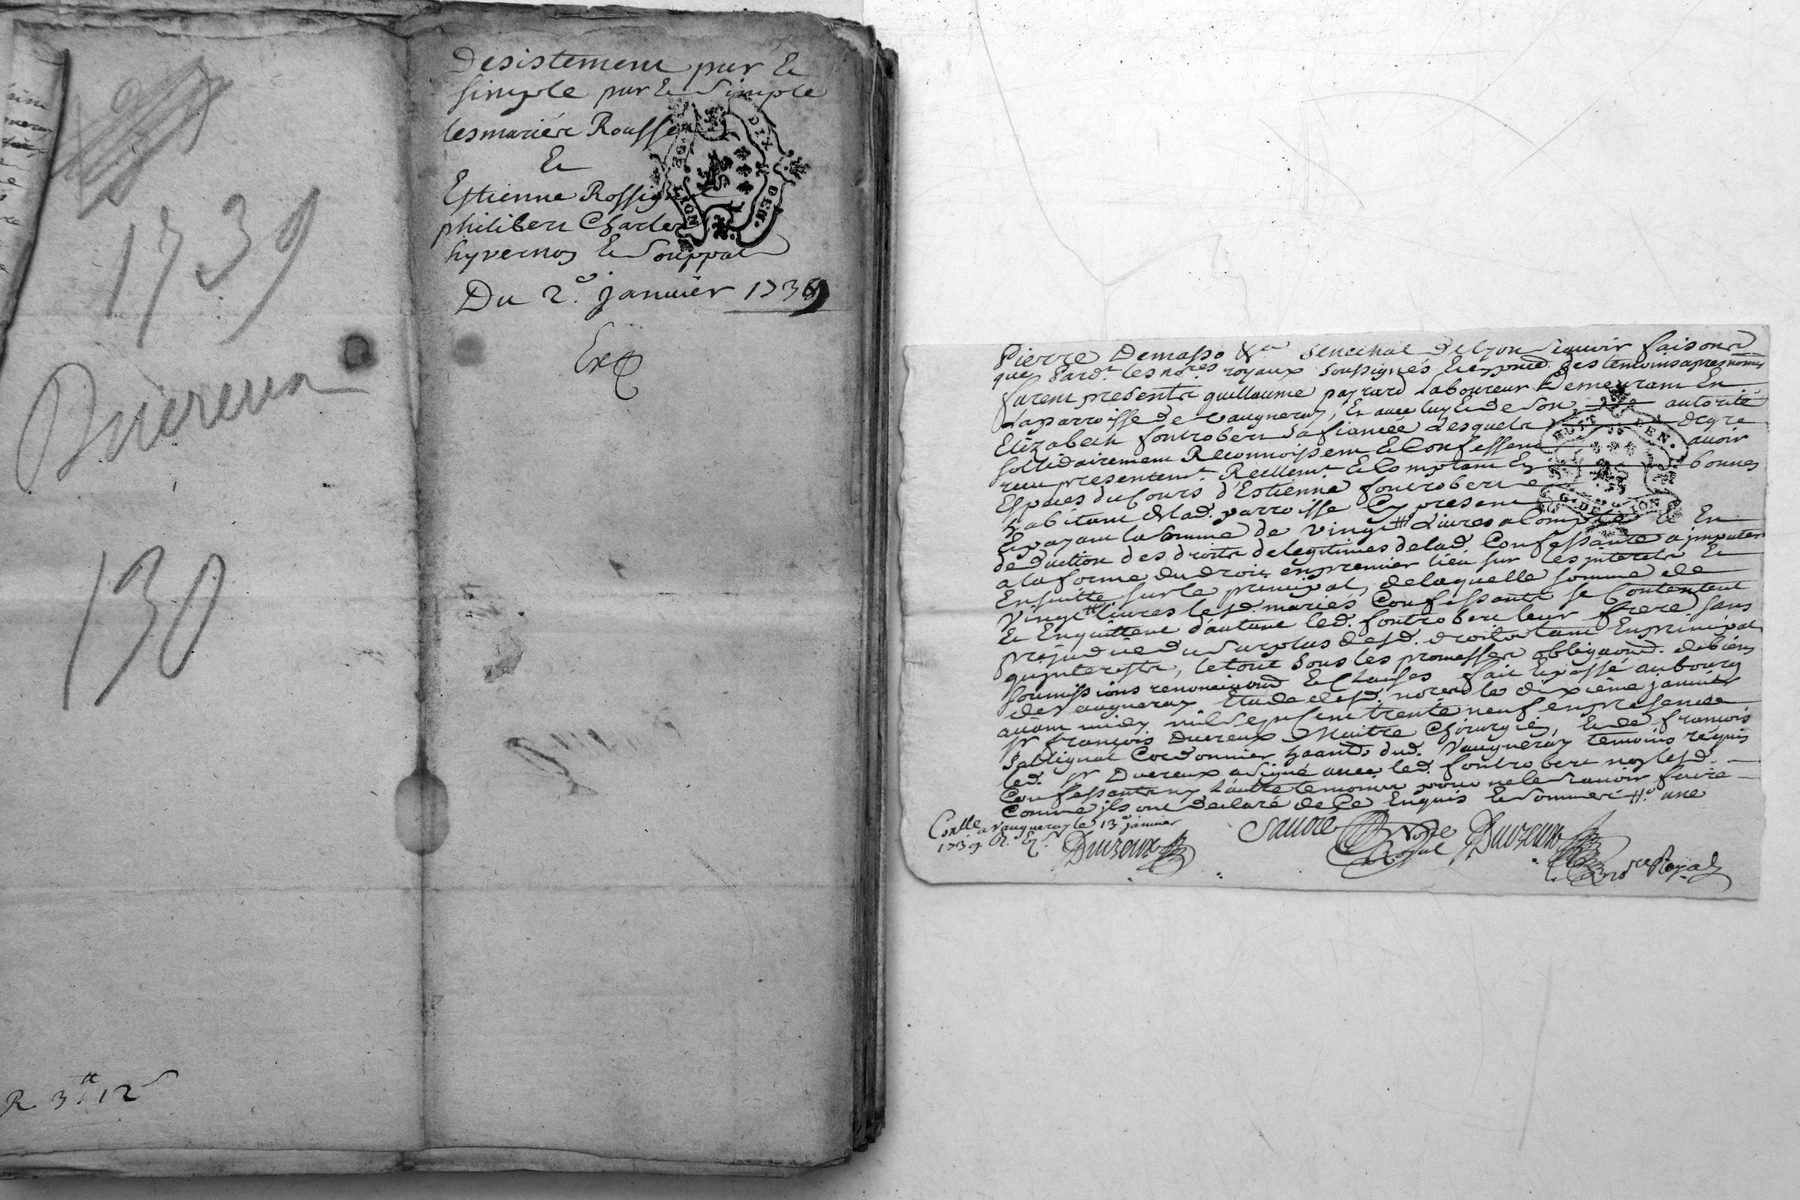 1739
Duereux
130
R 3tt 12s
Desistement pur et
simple pur et simple
les mariés Rousse
Et
Estienne Rossig
philibert Charles
hyvernos et Souppat
Du 2e janvier 1739
Ex
GEN. DE LYON
Pierre Demasso &a senechal de lyon scavoir faisons
que pardt les nores royaux soussignés et en pnce des temoins apres nommés
furent presents guillaume payrard laboureur demeurant En
la parroisse de vaugneray, Et avec luy et de son autorité
Elizabeth fontrobert sa fiancée Lesquels de gre
sollidairement Reconnoissent et Confessent avoir
receu presentemt Reellemt et Comptant En bonnes
Especes du Cours d'Estienne fontrobert
habitant de lad. parroisse Cy present
Et payant la somme de vingt livres a Compte et En
deduction des droits de legitimes de lad. Confessante a imputer
a la forme du droit en premier lieu sur les interets et
Ensuitte sur le principal, de laquelle somme de
vingt livres lesd. mariés Confessants se Contentent
Et En quittent d'autant led. fontrobert leur frere sans
prejudice du surplus desd. droits tant En principal
qu'interests, le tout sous les promesses obligaons de biens
soumissions renonciaons et Clauses fait et passé au bourg
de vaugneray Etude desd. nores le dixième janvier
avant midy mil sept cent trente neuf en presence de
sr françois Duereux Maitre Chirurgien, et de françois
Salignat Cordonnier habants dud. Vaugneray temoins requis
led. sr Duereux a signé avec led. fontrobert non lesd.
Confessants ny l'autre temoin pour ne le scavoir faire
Comme ils ont declaré de Ce Enquis et sommés une
Conlle a vaugneray le 13e janvier
1739 R.
Duereux
Sauore
Nore Royal
Duereux
nore Royal